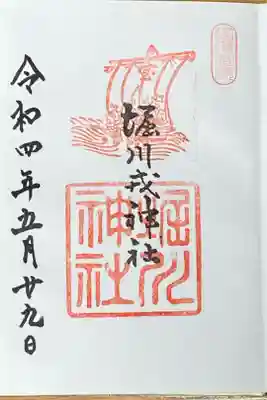 堀川戎神社
堀川
神社
令和四年五月廿九日